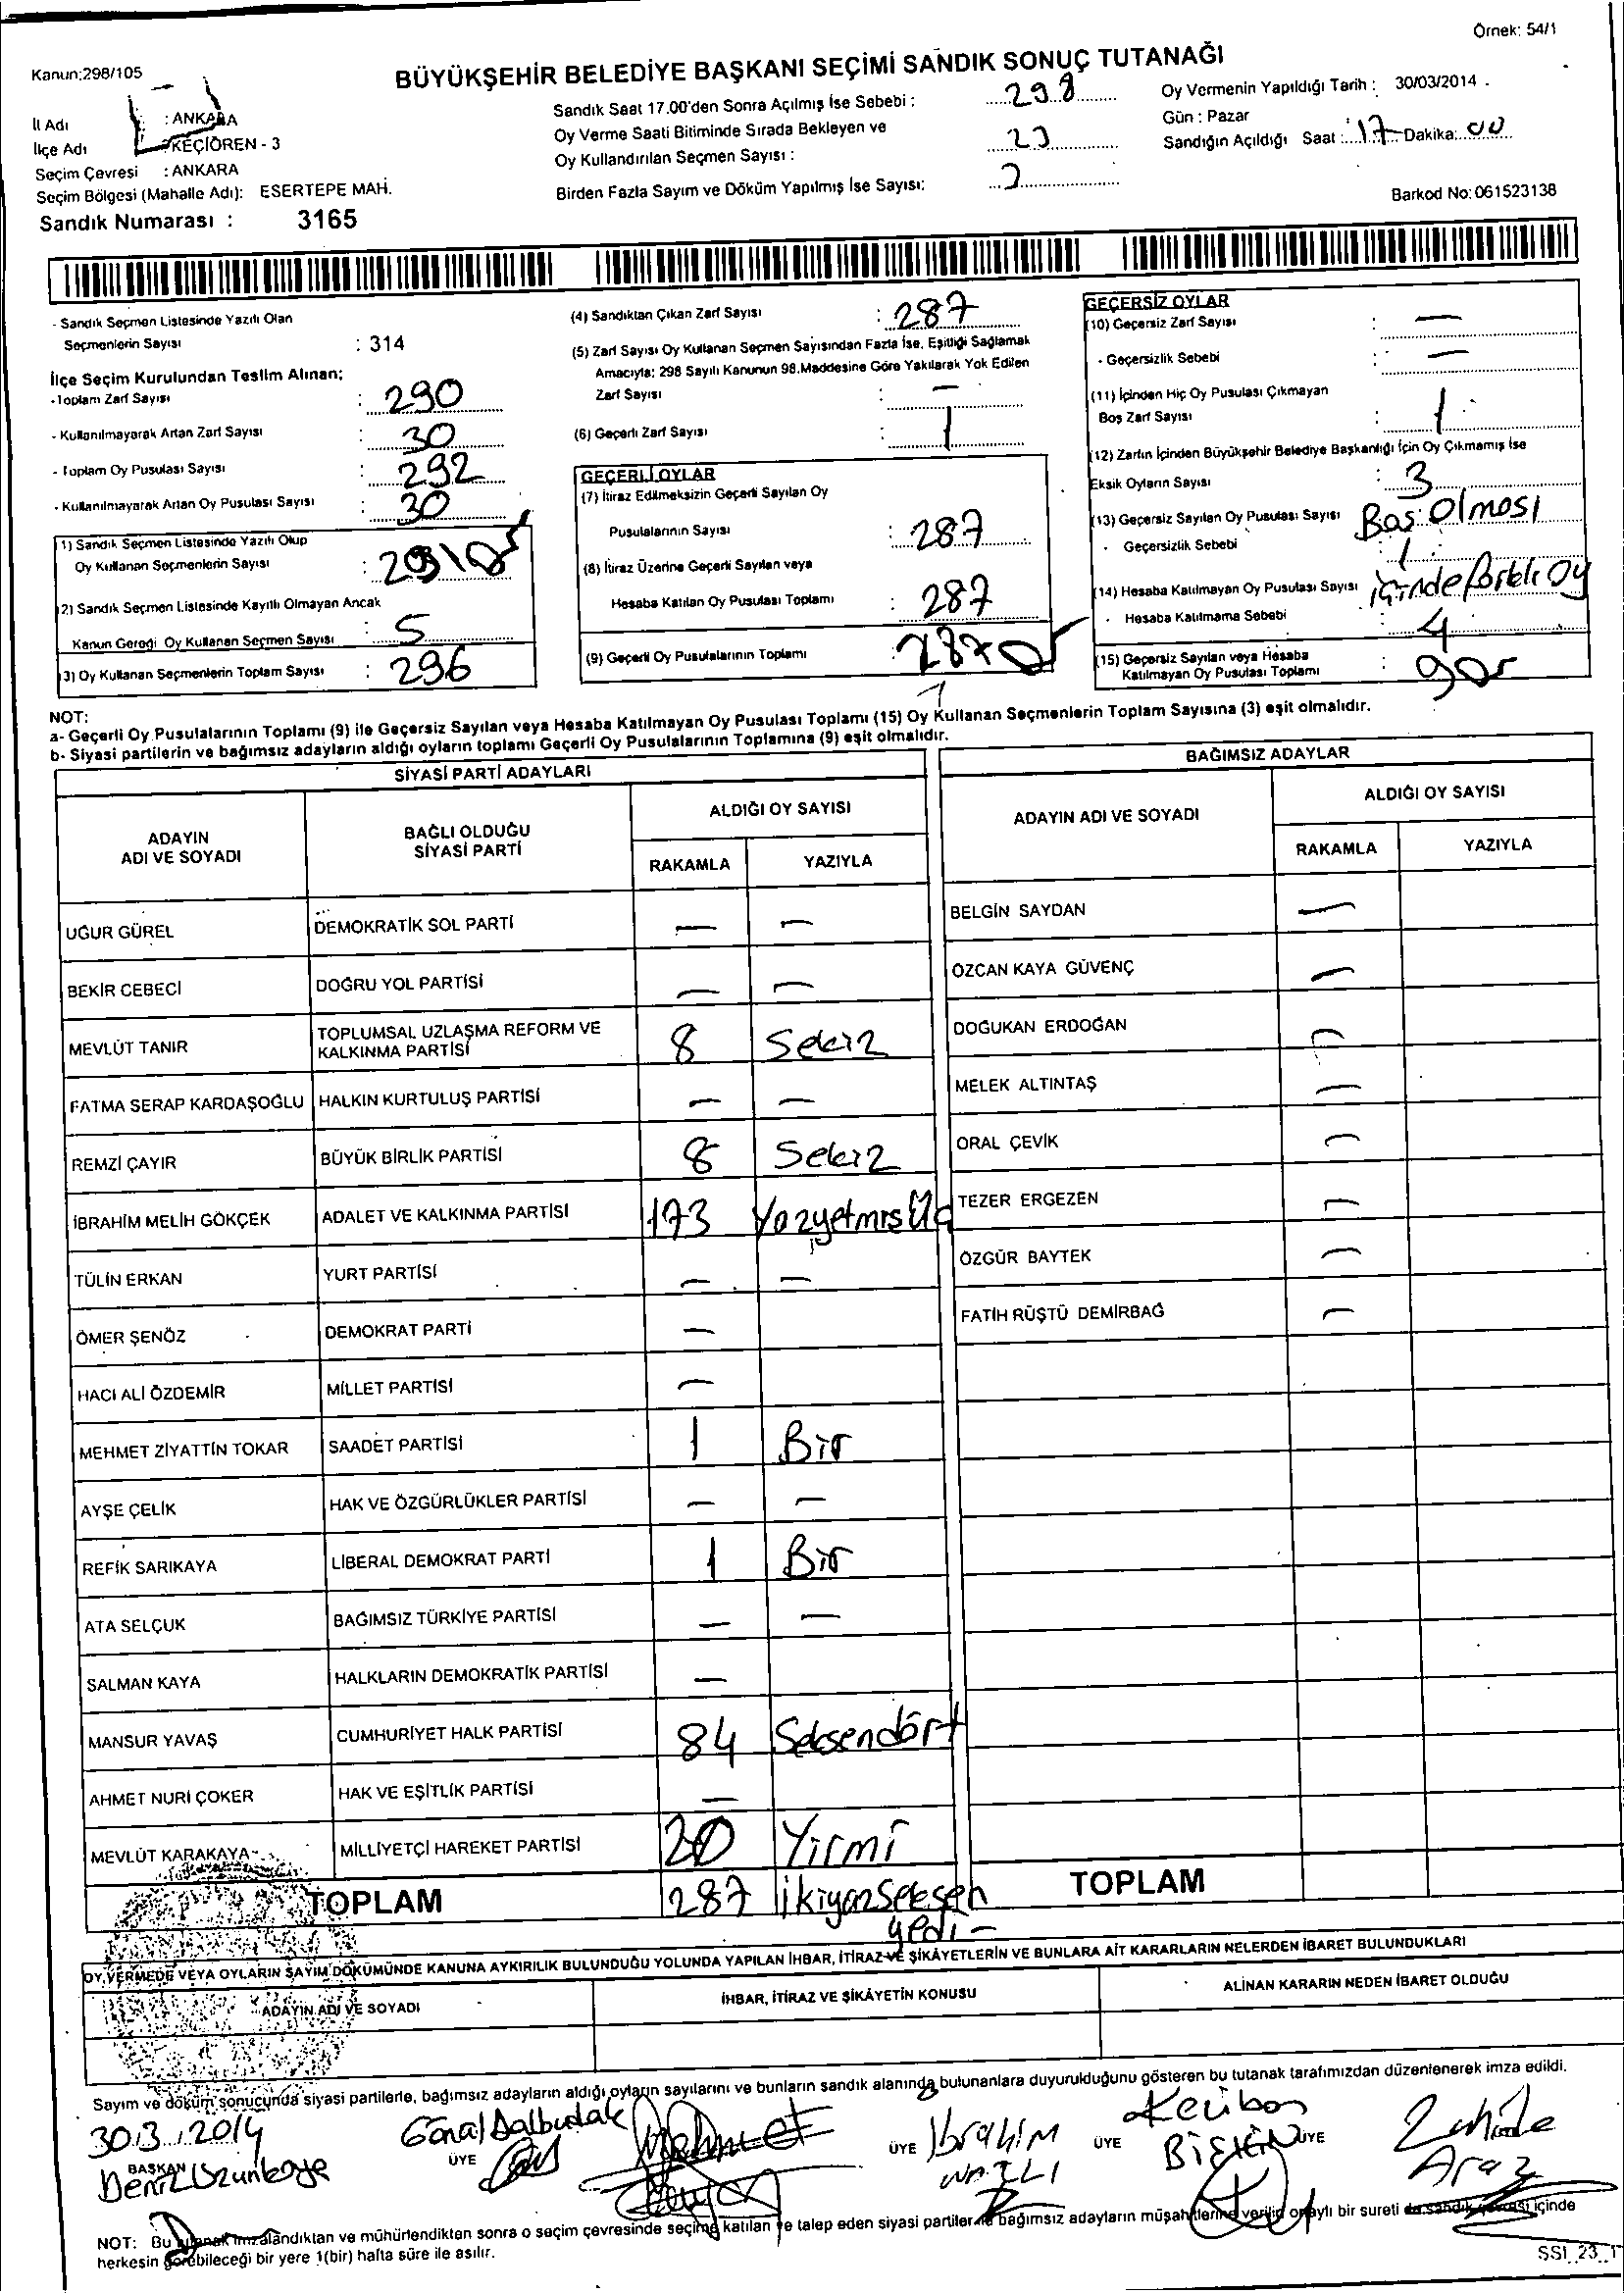 Örnek: 54/1
Kanun:298/105
BÜYÜKŞEHİR BELEDİYE BAŞKANI SEÇİMİ SANDIK SONUÇ TUTANAĞI
İl Adı : ANKARA
İlçe Adı : KEÇİÖREN - 3
Seçim Çevresi : ANKARA
Seçim Bölgesi (Mahalle Adı): ESERTEPE MAH.
Sandık Numarası : 3165
Sandık Saat 17.00'den Sonra Açılmış İse Sebebi : 298
Oy Verme Saati Bitiminde Sırada Bekleyen ve
Oy Kullandırılan Seçmen Sayısı :
Birden Fazla Sayım ve Döküm Yapılmış İse Sayısı:
Oy Vermenin Yapıldığı Tarih : 30/03/2014
Gün : Pazar
Sandığın Açıldığı Saat : 17 Dakika: 00
Barkod No: 061523138
- Sandık Seçmen Listesinde Yazılı Olan
Seçmenlerin Sayısı : 314
İlçe Seçim Kurulundan Teslim Alınan;
- Toplam Zarf Sayısı : 290
- Kullanılmayarak Artan Zarf Sayısı : 30
- Toplam Oy Pusulası Sayısı : 292
- Kullanılmayarak Artan Oy Pusulası Sayısı : 30
1) Sandık Seçmen Listesinde Yazılı Olup
Oy Kullanan Seçmenlerin Sayısı :
(2) Sandık Seçmen Listesinde Kayıtlı Olmayan Ancak
Kanun Gereği Oy Kullanan Seçmen Sayısı : 5
(3) Oy Kullanan Seçmenlerin Toplam Sayısı : 296
(4) Sandıktan Çıkan Zarf Sayısı : 287
(5) Zarf Sayısı Oy Kullanan Seçmen Sayısından Fazla İse, Eşitliği Sağlamak
Amacıyla; 298 Sayılı Kanunun 98.Maddesine Göre Yakılarak Yok Edilen
Zarf Sayısı : —
(6) Geçerli Zarf Sayısı :
GEÇERLİ OYLAR
(7) İtiraz Edilmeksizin Geçerli Sayılan Oy
Pusulalarının Sayısı : 287
(8) İtiraz Üzerine Geçerli Sayılan veya
Hesaba Katılan Oy Pusulası Toplamı : 287
(9) Geçerli Oy Pusulalarının Toplamı : 287
GEÇERSİZ OYLAR
(10) Geçersiz Zarf Sayısı : —
- Geçersizlik Sebebi : —
(11) İçinden Hiç Oy Pusulası Çıkmayan
Boş Zarf Sayısı : 1
(12) Zarfın İçinden Büyükşehir Belediye Başkanlığı İçin Oy Çıkmamış İse
Eksik Oyların Sayısı : 3
(13) Geçersiz Sayılan Oy Pusulası Sayısı Boş Olması
- Geçersizlik Sebebi : 1
(14) Hesaba Katılmayan Oy Pusulası Sayısı içinde farklı oy
- Hesaba Katılmama Sebebi : 4
(15) Geçersiz Sayılan veya Hesaba
Katılmayan Oy Pusulası Toplamı : 9
NOT:
a- Geçerli Oy Pusulalarının Toplamı (9) ile Geçersiz Sayılan veya Hesaba Katılmayan Oy Pusulası Toplamı (15) Oy Kullanan Seçmenlerin Toplam Sayısına (3) eşit olmalıdır.
b- Siyasi partilerin ve bağımsız adayların aldığı oyların toplamı Geçerli Oy Pusulalarının Toplamına (9) eşit olmalıdır.
SİYASİ PARTİ ADAYLARI
ADAYIN ADI VE SOYADI
BAĞLI OLDUĞU SİYASİ PARTİ
ALDIĞI OY SAYISI
RAKAMLA YAZIYLA
UĞUR GÜREL DEMOKRATİK SOL PARTİ — —
BEKİR CEBECİ DOĞRU YOL PARTİSİ — —
MEVLÜT TANIR TOPLUMSAL UZLAŞMA REFORM VE KALKINMA PARTİSİ 8 Sekiz
FATMA SERAP KARDAŞOĞLU HALKIN KURTULUŞ PARTİSİ — —
REMZİ ÇAYIR BÜYÜK BİRLİK PARTİSİ 8 Sekiz
İBRAHİM MELİH GÖKÇEK ADALET VE KALKINMA PARTİSİ 173 Yüzyetmiş Üç
TÜLİN ERKAN YURT PARTİSİ — —
ÖMER ŞENÖZ DEMOKRAT PARTİ —
HACI ALİ ÖZDEMİR MİLLET PARTİSİ —
MEHMET ZİYATTİN TOKAR SAADET PARTİSİ 1 Bir
AYŞE ÇELİK HAK VE ÖZGÜRLÜKLER PARTİSİ — —
REFİK SARIKAYA LİBERAL DEMOKRAT PARTİ 1 Bir
ATA SELÇUK BAĞIMSIZ TÜRKİYE PARTİSİ — —
SALMAN KAYA HALKLARIN DEMOKRATİK PARTİSİ —
MANSUR YAVAŞ CUMHURİYET HALK PARTİSİ 84 Seksendört
AHMET NURİ ÇOKER HAK VE EŞİTLİK PARTİSİ —
MEVLÜT KARAKAYA MİLLİYETÇİ HAREKET PARTİSİ 20 Yirmi
TOPLAM 287 ikiyüzseksen
yedi -
BAĞIMSIZ ADAYLAR
ADAYIN ADI VE SOYADI
ALDIĞI OY SAYISI
RAKAMLA YAZIYLA
BELGİN SAYDAN —
ÖZCAN KAYA GÜVENÇ —
DOĞUKAN ERDOĞAN —
MELEK ALTINTAŞ —
ORAL ÇEVİK —
TEZER ERGEZEN —
ÖZGÜR BAYTEK —
FATİH RÜŞTÜ DEMİRBAĞ —
TOPLAM
OY VERMEDE VEYA OYLARIN SAYIM DÖKÜMÜNDE KANUNA AYKIRILIK BULUNDUĞU YOLUNDA YAPILAN İHBAR, İTİRAZ VE ŞİKÂYETLERİN VE BUNLARA AİT KARARLARIN NELERDEN İBARET BULUNDUKLARI
ADAYIN ADI VE SOYADI
İHBAR, İTİRAZ VE ŞİKÂYETİN KONUSU
ALINAN KARARIN NEDEN İBARET OLDUĞU
Sayım ve döküm sonucunda siyasi partilerle, bağımsız adayların aldığı oyların sayılarını ve bunların sandık alanında bulunanlara duyurulduğunu gösteren bu tutanak tarafımızdan düzenlenerek imza edildi.
30.3.2014
BAŞKAN ÜYE ÜYE ÜYE ÜYE
Mehmet
İbrahim
Araz
NOT: Bu tutanak imzalandıktan ve mühürlendikten sonra o seçim çevresinde seçime katılan ve talep eden siyasi partiler ile bağımsız adayların müşahitlerine verilir onaylı bir sureti da sandık çevresi içinde
herkesin görebileceği bir yere 1(bir) hafta süre ile asılır.
SSI_23_1